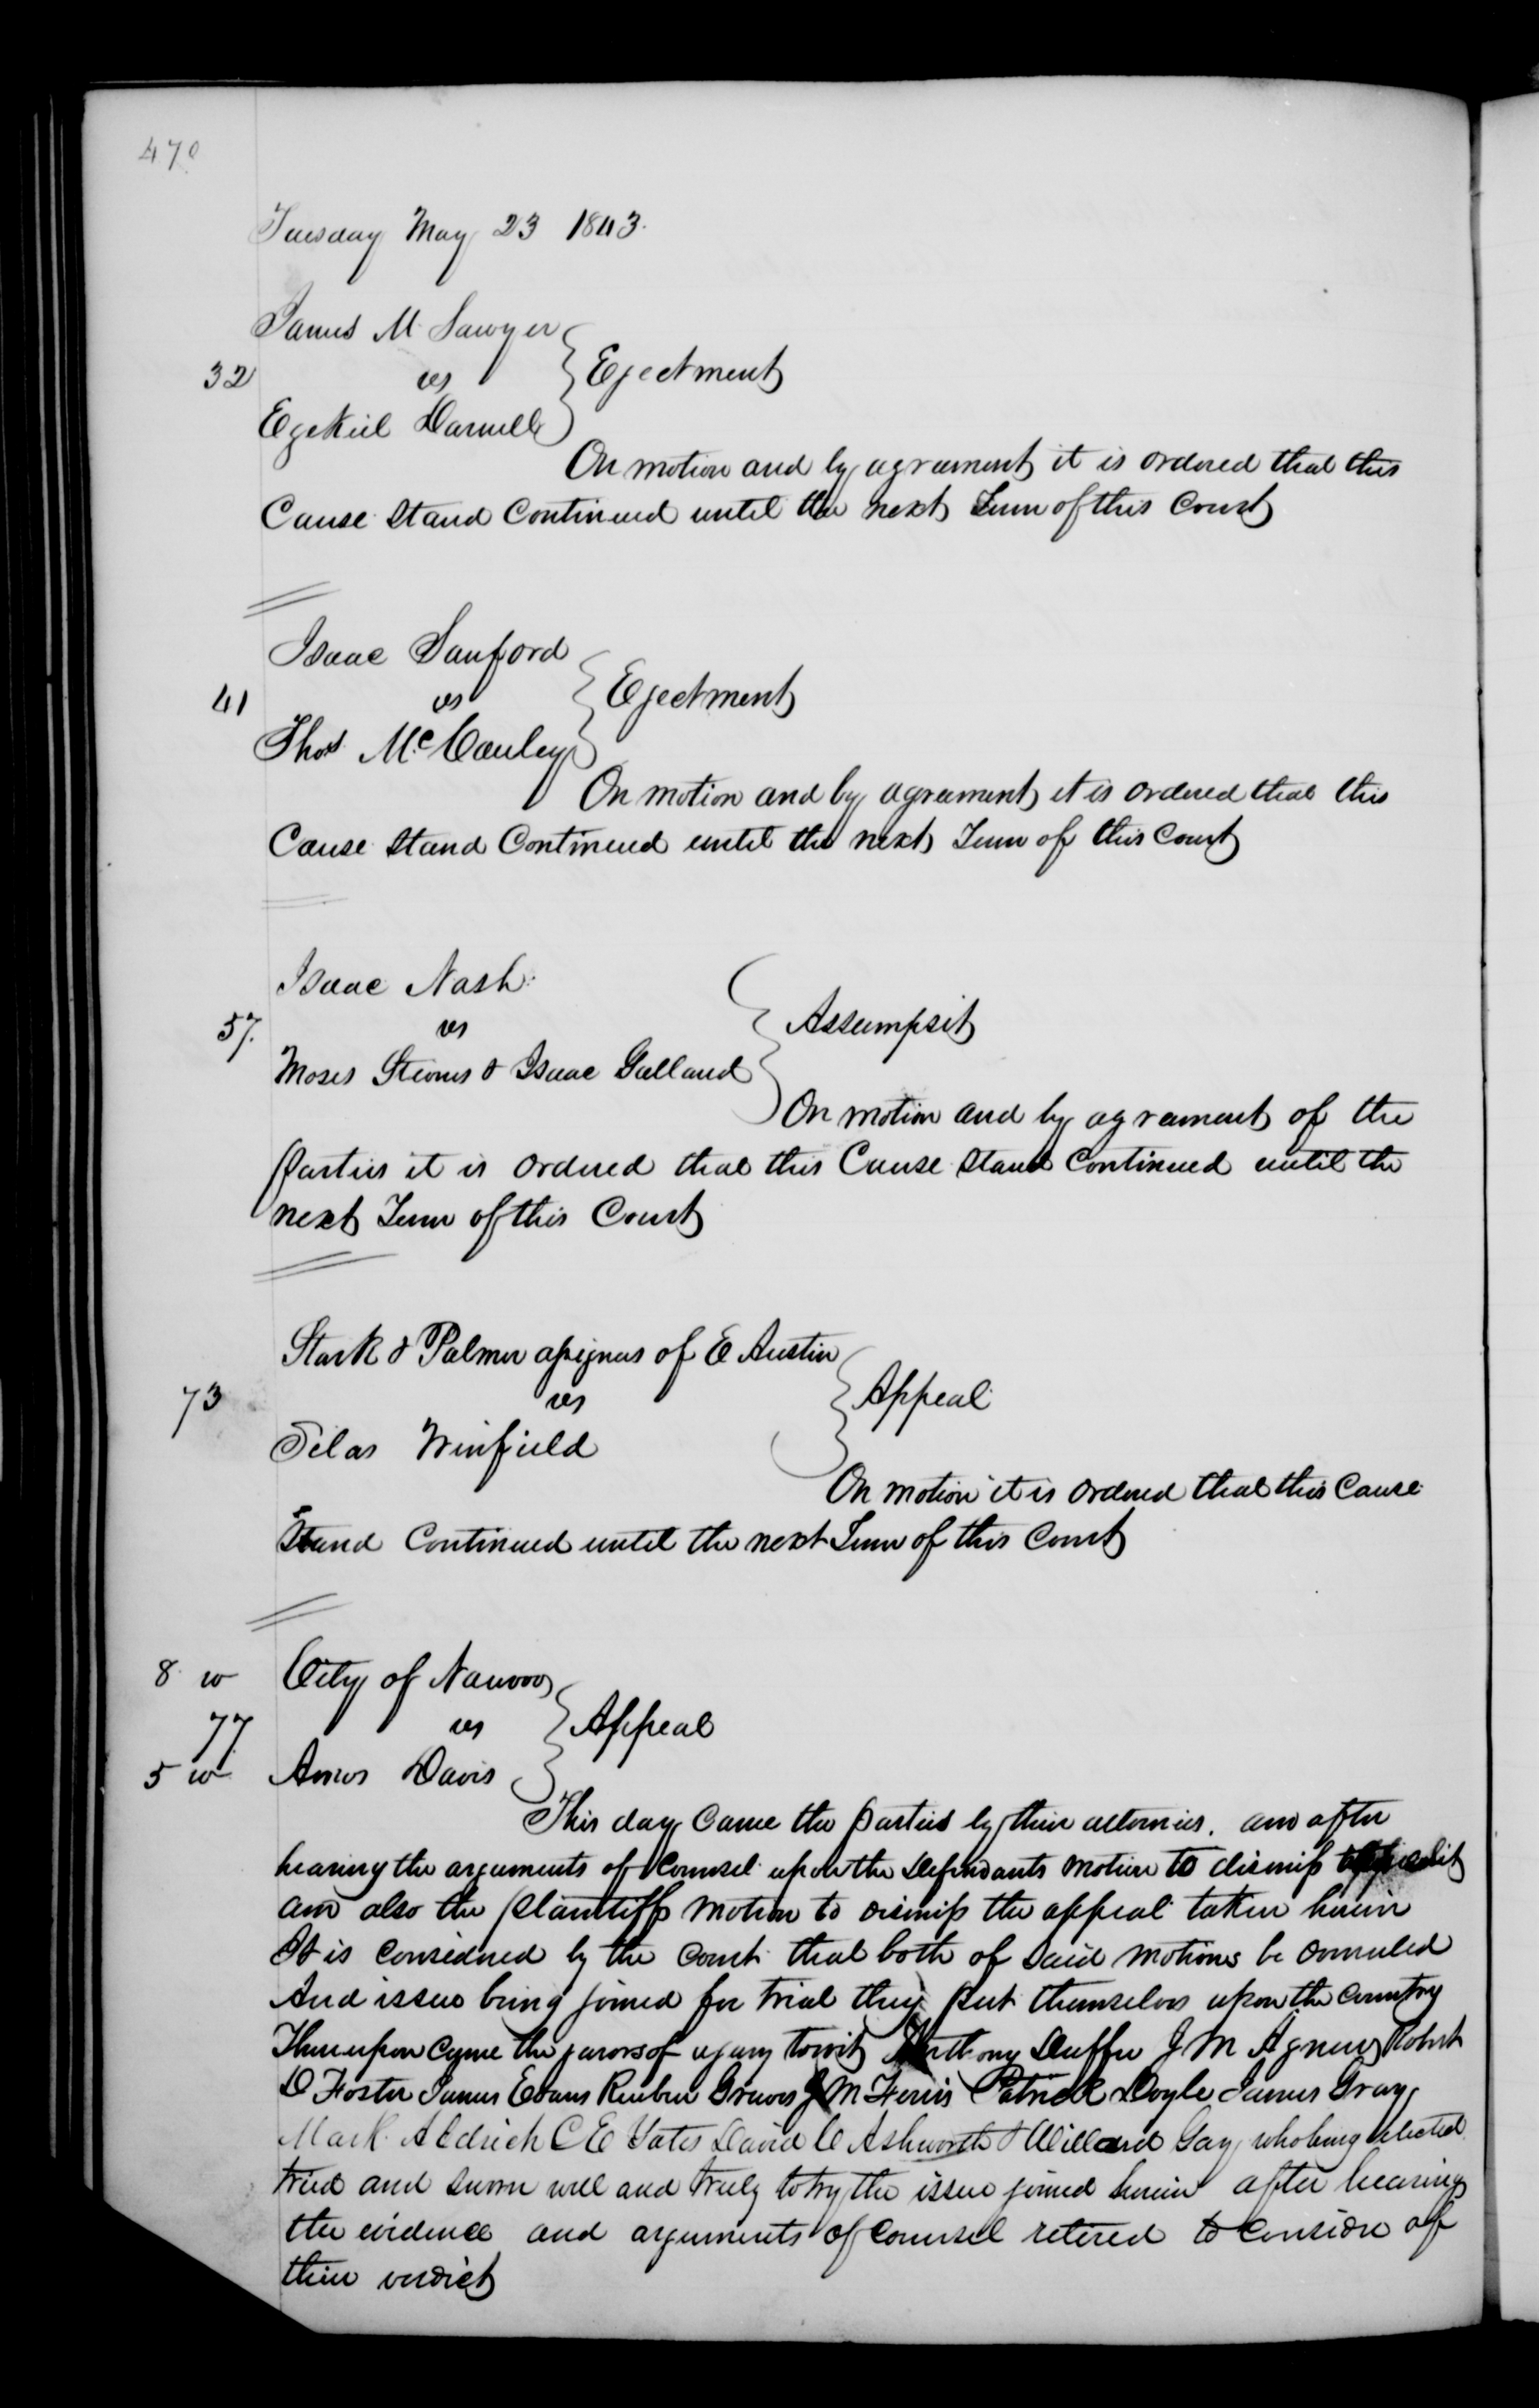 470
Tuesday May 23 1843.
James M Sawyer
32 vs Ejectment
Ezekiel Darnell
On motion and by agreement it is ordered that this
Cause Stand Continued until the next Term of this Court
Isaac Sanford
41 vs Ejectment
Thos McCauley
On motion and by agreement it is ordered that this
Cause Stand Continued until the next Term of this Court
Isaac Nash
57. vs Assumpsit
Moses Stevens & Isaac Galland
On motion and by agreement of the
parties it is ordered that this Cause Stand Continued until the
next Term of this Court
Stark & Palmer assignees of E Austin
73 vs Appeal
Silas Winfield
On motion it is ordered that this Cause
Stand Continued until the next Term of this Court
8 w City of Nauvoo
77 vs Appeal
5 w Amos Davis
This day Came the parties by their attornies. and after
hearing the arguments of Counsel upon the Defendants motion to dismiss
and also the plaintiffs motion to dismiss the appeal taken herein
It is considered by the Court that both of said motions be overruled
And issue being joined for trial they put themselves upon the Country
Thereupon Came the jurors of a jury towit Anthony Duffee J M Agnew Robert
D Foster James Evans Reuben Graves J M Ferris Patrick Doyle James Gray
Mark Aldrich C E Yates David C Ashworth & Willard Gay, who being elected
tried and sworn well and truly to try the issue joined herein after hearing
the evidence and arguments of Counsel retired to Consider of
their verdict